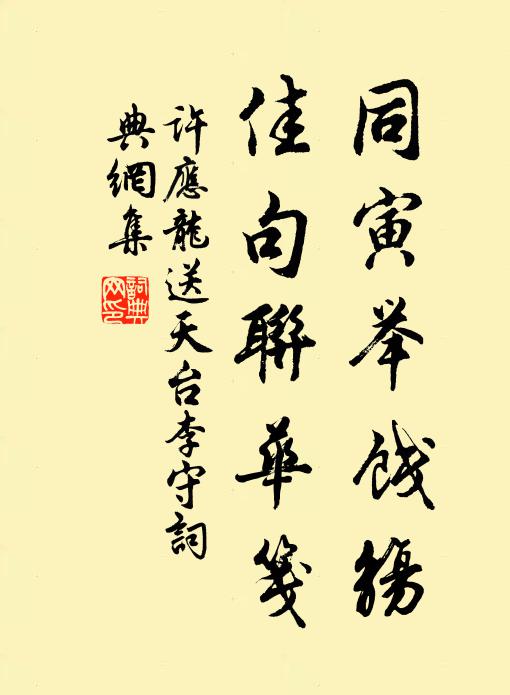 同寅举餞觴
佳句聯華箋
許應龍送天台李守詞
典網集
詞典网印